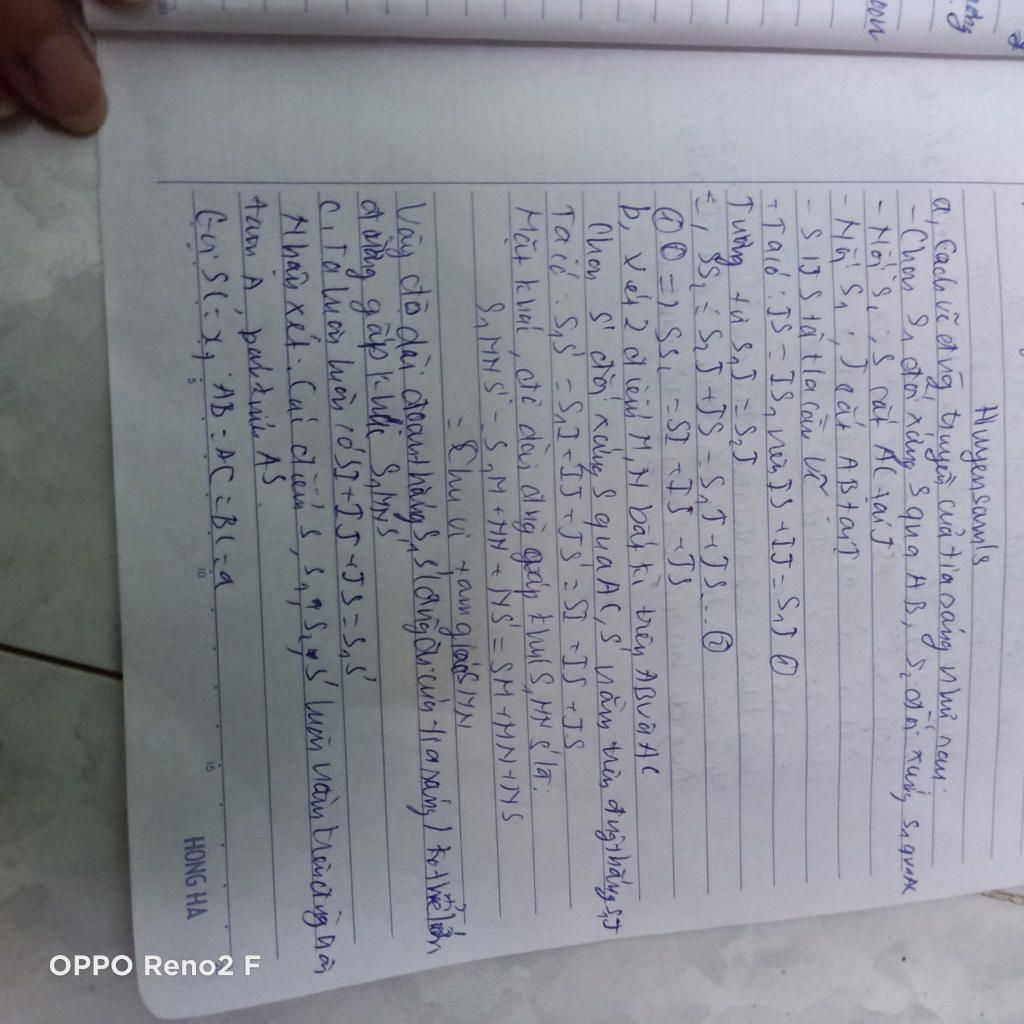 Huyensamls
a, Cách vẽ đường truyền của tia sáng như sau:
- Chọn S₁ đối xứng S qua AB, S₂ đối xứng S₁ qua AC
- Nối S₂; S cắt AC tại J
- Nối S₁; J cắt AB tại I
- SIJS tia cần vẽ
+ Ta có: IS = IS₁ nên IS + IJ = S₁J ①
Tương tự S₁J = S₂J
SS₂ = S₂J + JS = S₁J + JS .. ②
① ② => SS₂ = SI + IJ + JS
b, Xét 2 điểm M, N bất kì trên AB và AC
Chọn S' đối xứng S qua AC, S' nằm trên đường thẳng S₁J
Ta có: S₁S' = S₁I + IJ + JS' = SI + IJ + JS
Mặt khác, độ dài đường gấp khúc S₁MNS' là:
S₁MNS' = S₁M + MN + NS' = SM + MN + NS
= Chu vi tam giác SMN
Vậy độ dài đoạn thẳng S₁S' (đường đi của tia sáng) không thể lớn
đường gấp khúc S₁MNS'
c, Ta luôn luôn có SI + IJ + JS = S₁S'
Nhận xét: Các điểm S, S₁, S₂, S' luôn nằm trên đường tròn
tâm A, bán kính AS
Gọi SC = x, AB = AC = BC = a
5 10 15
HONG HA
OPPO Reno2 F